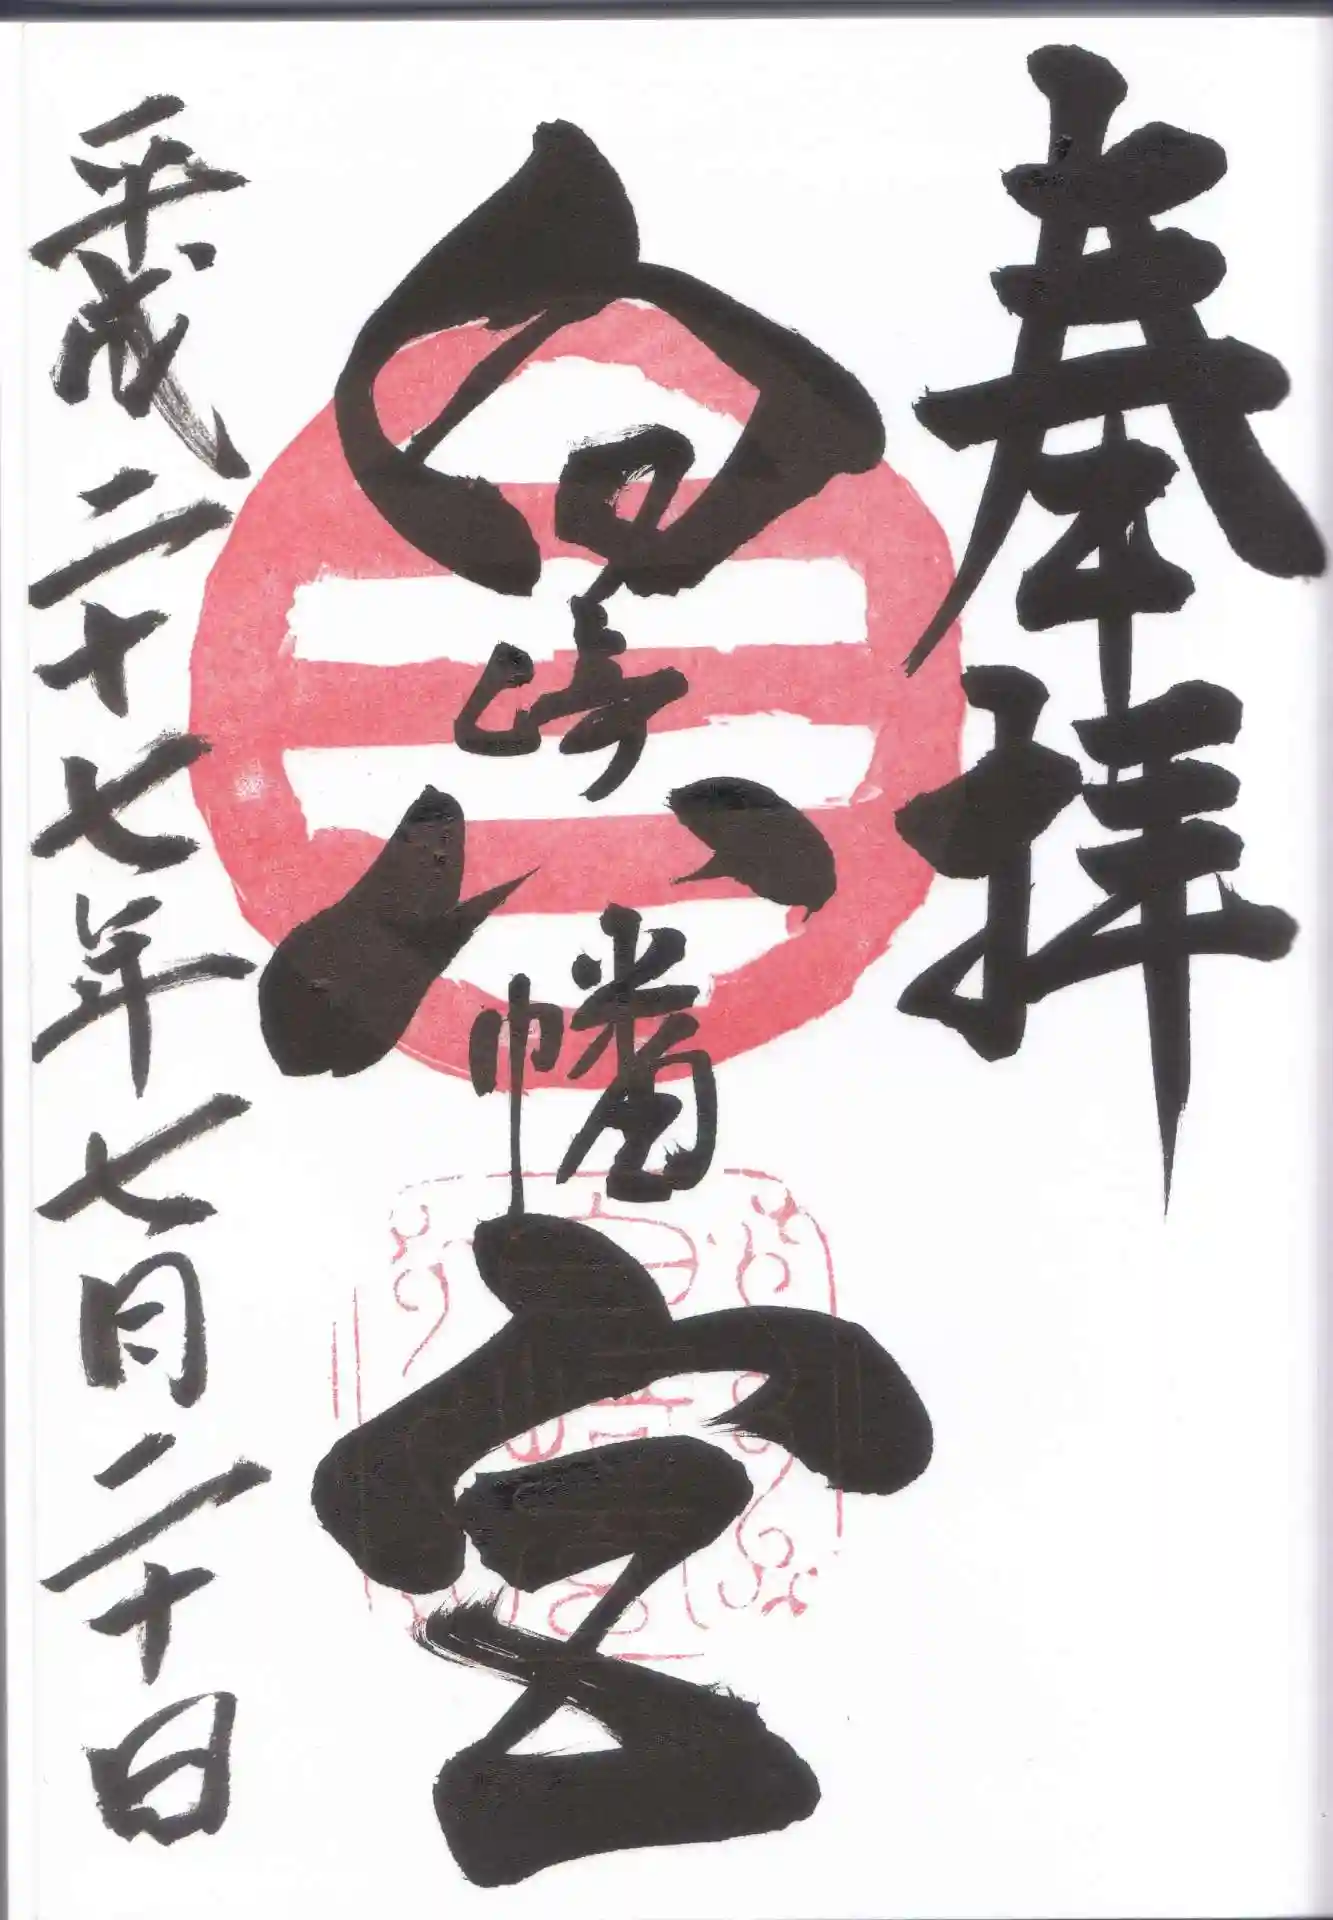 奉拝
白崎八幡宮
平成二十七年七月二十日